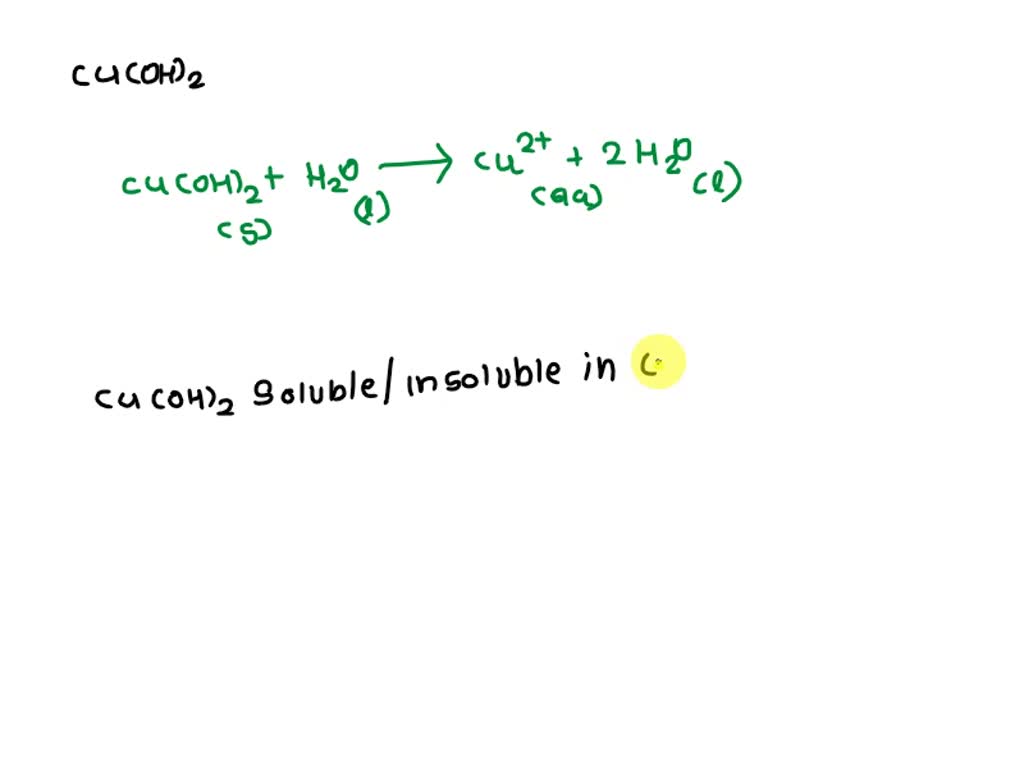 Cu(OH)2
Cu(OH)2 + H2O → Cu2+ + 2H2O
(s) (l) (aq) (l)
Cu(OH)2 Soluble/insoluble in